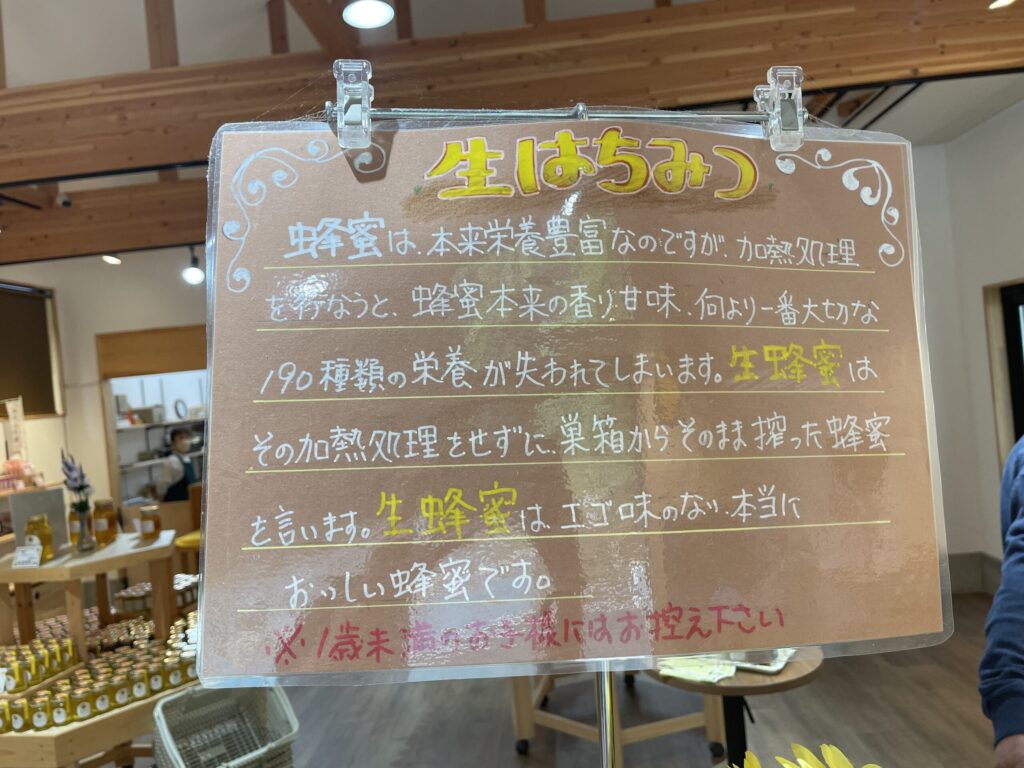 生はちみつ
蜂蜜は、本来栄養豊富なのですが、加熱処理
を行なうと、蜂蜜本来の香り、甘味、何より一番大切な
190種類の栄養が失われてしまいます。生蜂蜜は
その加熱処理をせずに、巣箱からそのまま搾った蜂蜜
を言います。生蜂蜜は、エゴ味のない、本当に
おいしい蜂蜜です。
※1歳未満のお子様にはお控え下さい